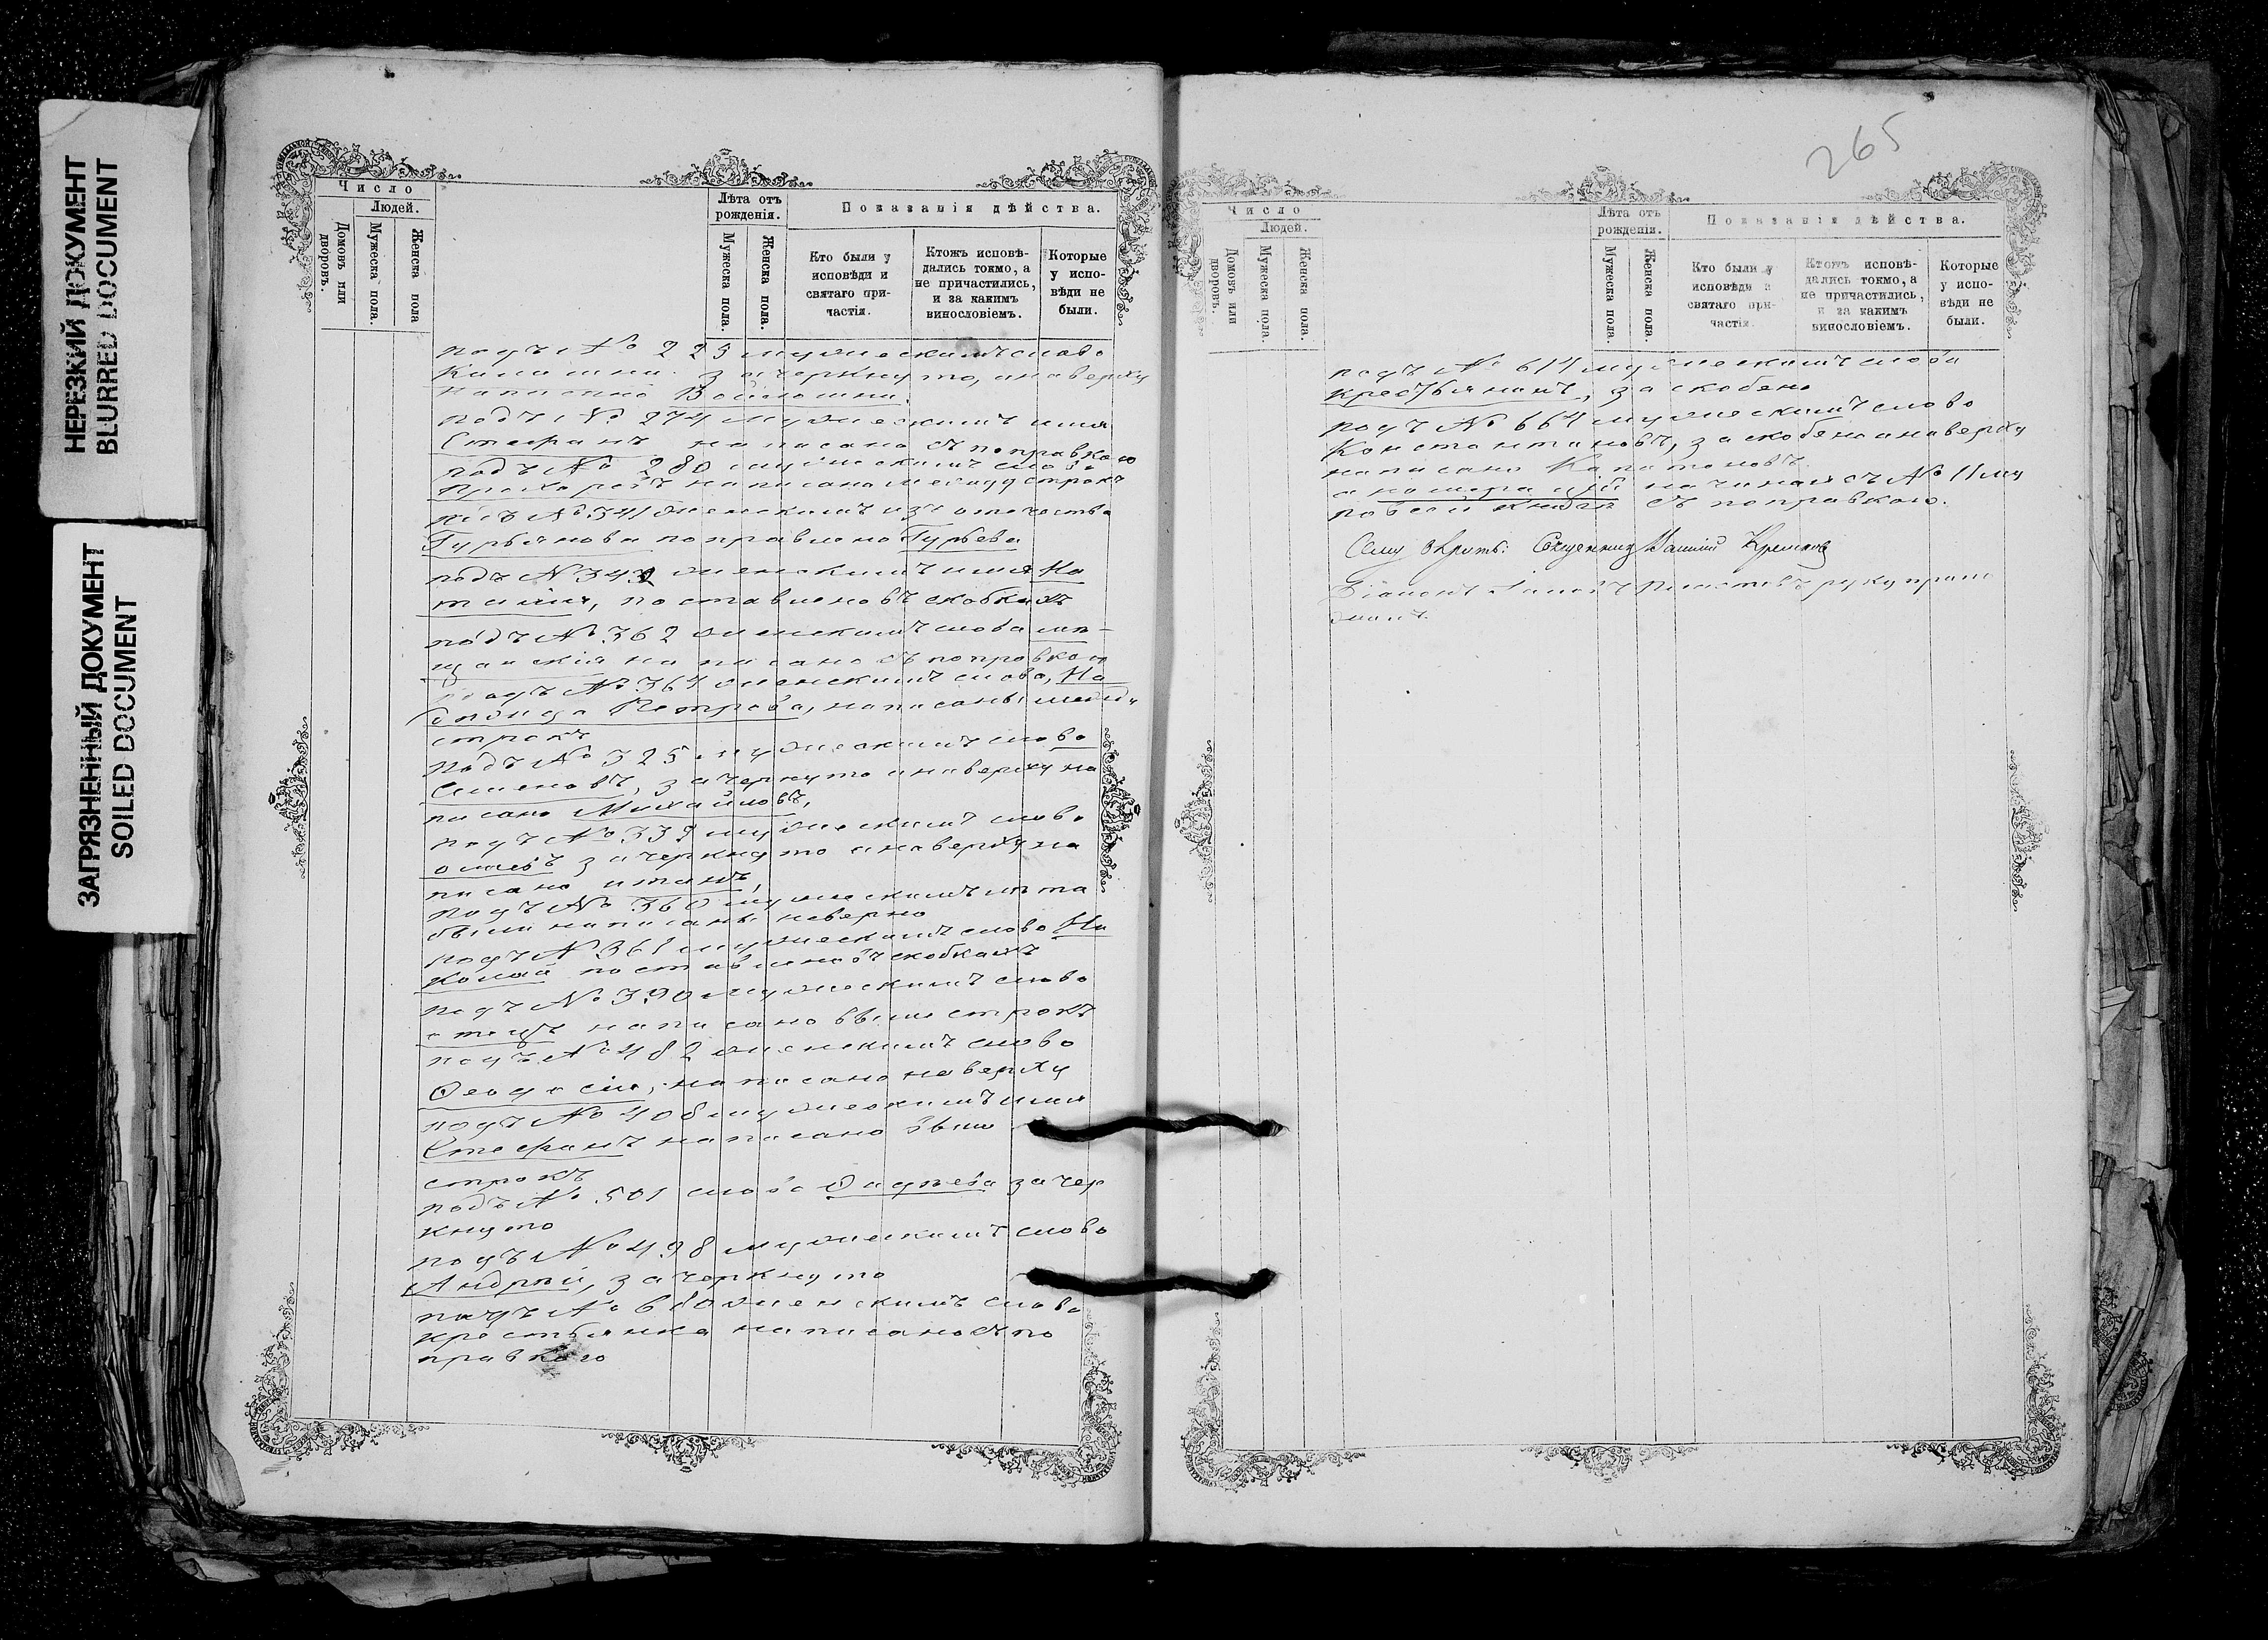 НЕРЕЗКИЙ ДОКУМЕНТ
BLURRED DOCUMENT
ЗАГРЯЗНЕННЫЙ ДОКУМЕНТ
SOILED DOCUMENT
Число
Людей.
Домовъ или дворовъ.
Мужеска пола.
Женска пола
Лѣта отъ рожденія.
Мужеска пола.
Женска пола.
Показанія дѣйства.
Кто были у
исповѣди и
святаго при-
частія.
Ктожъ исповѣ-
дались токмо, а
не причастились,
и за какимъ
винословіемъ.
Которые
у испо-
вѣди не
были.
подъ № 223 мужескимъ слово
зачеркнуто, а наверху
написано
подъ № 274 мужескимъ имя
Стефанъ написано съ поправкою
подъ № 280 мужескимъ слово
написано между строкъ
подъ № 341 женскимъ изъ отечества
Гурьянова поправлено Гурьева
подъ № 343 женскимъ имя На
талія, поставлено въ скобкахъ
подъ № 362 женскимъ слова мѣ-
щанскія написано съ поправкою
подъ № 364 женскимъ слово, На
дежда Петрова, написаны между
строкъ
подъ № 325 мужескимъ слово
Семеновъ, зачеркнуто а наверху на
писано Михайловъ,
подъ № 339 мужескимъ слово
зачеркнуто а наверху на
писано
подъ № 360 мужескимъ лѣта
были написаны неверно
подъ № 361 мужескимъ слово Ни
колай поставлено въ скобкахъ
подъ № 390 мужескимъ слово
отецъ написано выше строкъ
подъ № 482 женскимъ слово
Феодосія, написано наверху
подъ № 408 мужескимъ имя
Стефанъ написано выше
строкъ
подъ № 501 слово Фадѣева зачер
кнуто
подъ № 498 мужескимъ слово
Андрей, зачеркнуто
подъ № 680 женскимъ слово
крестьянка написано съ по
правкою
265
Число
Людей.
Домовъ или дворовъ.
Мужеска пола
Женска пола.
Лѣта отъ рожденія.
Мужеска пола.
Женска пола.
Показанія дѣйства.
Кто были у
исповѣди и
святаго при-
частія.
Ктожъ исповѣ-
дались токмо, а
не причастились,
и за какимъ
винословіемъ.
Которые
у испо-
вѣди не
были.
подъ № 614 мужескимъ слово
крестьянинъ, заскобено
подъ № 664 мужескимъ слово
Константиновъ, заскобено а наверху
написано Капитоновъ.
а нумерація начиная съ № 11 му
по всей книгѣ съ поправкою.
Сему вѣритъ: Священникъ
руку прило
жилъ.